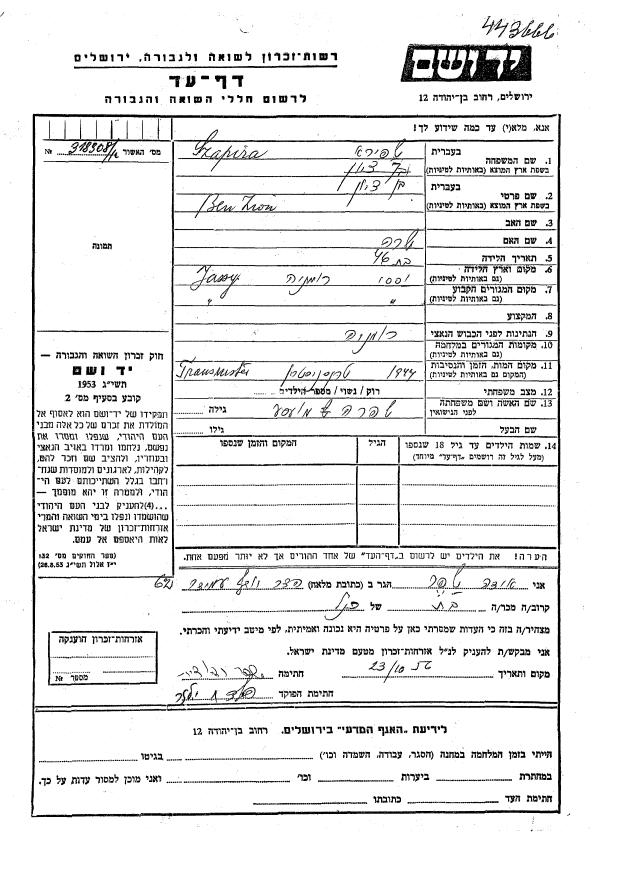 443666
רשות-זכרון לשואה ולגבורה, ירושלים
דף-עד
לרשום חללי השואה והגבורה
יד ושם
ירושלים, רחוב בן-יהודה 12
אנא, מלא(י) עד כמה שידוע לך!
מס׳ האשור 318508/2 №
תמונה
1. שם המשפחה
בעברית שפירא
בשפת ארץ המוצא (באותיות לטיניות) Szapira
2. שם פרטי
בעברית בן ציון
בשפת ארץ המוצא (באותיות לטיניות) Ben Zion
3. שם האב
4. שם האם שרה
5. תאריך הלידה בת 46
6. מקום וארץ הלידה
(גם באותיות לטיניות) יסי רומניה Jassy
7. מקום המגורים הקבוע
(גם באותיות לטיניות) " "
8. המקצוע
9. הנתינות לפני הכבוש הנאצי רומניה
10. מקומות המגורים במלחמה
(גם באותיות לטיניות)
11. מקום המות, הזמן והנסיבות
(המקום גם באותיות לטיניות) 1944 טרנסניסטריה Transnistri
12. מצב משפחתי רוק / נשוי / מספר הילדים
13. שם האשה ושם משפחתה
לפני הנישואין שפרה גילה
שם הבעל גילו
14. שמות הילדים עד גיל 18 שנספו
(מעל לגיל זה רושמים "דף-עד" מיוחד)
הגיל
המקום והזמן שנספו
חוק זכרון השואה והגבורה —
יד ושם
תשי״ג 1953
קובע בסעיף מס׳ 2
ותפקידו של יד-ושם הוא לאסוף אל
המולדת את זכרם של כל אלה מבני
העם היהודי, שנפלו ומסרו את
נפשם, נלחמו ומרדו באויב הנאצי
ובעוזריו, ולהציב שם וזכר להם,
לקהילות, לארגונים ולמוסדות שנח-
רבו בגלל השתייכותם לעם הי-
הודי, ולמטרה זו יהא מוסמך —
...(4) להעניק לבני העם היהודי
שהושמדו ונפלו בימי השואה והמרי
אזרחות-זכרון של מדינת ישראל
לאות היאספם אל עמם.
(ספר החוקים מס׳ 132
י״ז אלול תשי״ג 28.8.53)
הערה! את הילדים יש לרשום ב"דף-העד" של אחד ההורים אך לא יותר מפעם אחת.
אני הגר ב (כתובת מלאה) 62
קרוב/ה מכר/ה בת של
מצהיר/ה בזה כי העדות שמסרתי כאן על פרטיה היא נכונה ואמיתית, לפי מיטב ידיעתי והכרתי.
אני מבקש/ת להעניק לנ״ל אזרחות-זכרון מטעם מדינת ישראל.
מקום ותאריך 23/10 חתימה
חתימת הפוקד
אזרחות-זכרון הוענקה
מספר №
לידיעת "האגף המדעי" בירושלים, רחוב בן-יהודה 12
הייתי בזמן המלחמה במחנה (הסגר, עבודה, השמדה וכו׳) בגיטו
במחתרת ביערות וכו׳ ואני מוכן למסור עדות על כך.
חתימת העד כתובתו